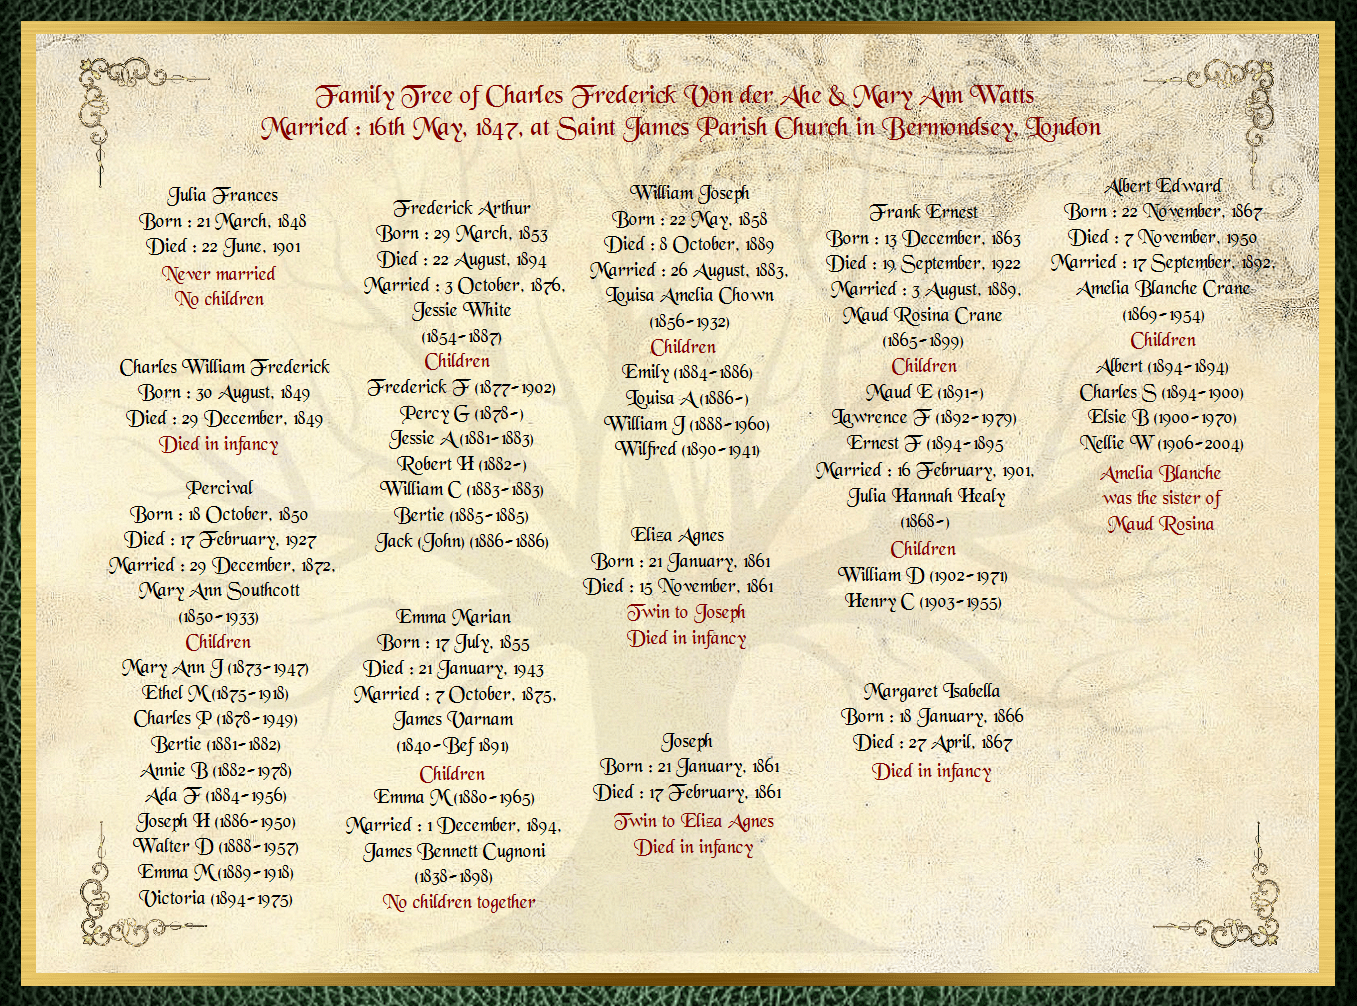 Family Tree of Charles Frederick Von der Ahe & Mary Ann Watts
Married : 16th May, 1847, at Saint James Parish Church in Bermondsey, London
Julia Frances
Born : 21 March, 1848
Died : 22 June, 1901
Never married
No children
Charles William Frederick
Born : 30 August, 1849
Died : 29 December, 1849
Died in infancy
Percival
Born : 18 October, 1850
Died : 17 February, 1927
Married : 29 December, 1872,
Mary Ann Southcott
(1850-1933)
Children
Mary Ann J (1873-1947)
Ethel M (1875-1918)
Charles P (1878-1949)
Bertie (1881-1882)
Annie B (1882-1978)
Ada F (1884-1956)
Joseph H (1886-1950)
Walter D (1888-1957)
Emma M (1889-1918)
Victoria (1894-1975)
Frederick Arthur
Born : 29 March, 1853
Died : 22 August, 1894
Married : 3 October, 1876,
Jessie White
(1854-1887)
Children
Frederick F (1877-1902)
Percy G (1878-)
Jessie A (1881-1883)
Robert H (1882-)
William C (1883-1883)
Bertie (1885-1885)
Jack (John) (1886-1886)
Emma Marian
Born : 17 July, 1855
Died : 21 January, 1943
Married : 7 October, 1875,
James Varnam
(1840-Bef 1891)
Children
Emma M (1880-1965)
Married : 1 December, 1894,
James Bennett Cugnoni
(1838-1898)
No children together
William Joseph
Born : 22 May, 1858
Died : 8 October, 1889
Married : 26 August, 1883,
Louisa Amelia Chown
(1856-1932)
Children
Emily (1884-1886)
Louisa A (1886-)
William J (1888-1960)
Wilfred (1890-1941)
Eliza Agnes
Born : 21 January, 1861
Died : 15 November, 1861
Twin to Joseph
Died in infancy
Joseph
Born : 21 January, 1861
Died : 17 February, 1861
Twin to Eliza Agnes
Died in infancy
Frank Ernest
Born : 13 December, 1863
Died : 19, September, 1922
Married : 3 August, 1889,
Maud Rosina Crane
(1865-1899)
Children
Maud E (1891-)
Lawrence F (1892-1979)
Ernest F (1894-1895
Married : 16 February, 1901,
Julia Hannah Healy
(1868-)
Children
William D (1902-1971)
Henry C (1903-1955)
Margaret Isabella
Born : 18 January, 1866
Died : 27 April, 1867
Died in infancy
Albert Edward
Born : 22 November, 1867
Died : 7 November, 1950
Married : 17 September, 1892,
Amelia Blanche Crane
(1869-1954)
Children
Albert (1894-1894)
Charles S (1894-1900)
Elsie B (1900-1970)
Nellie W (1906-2004)
Amelia Blanche
was the sister of
Maud Rosina